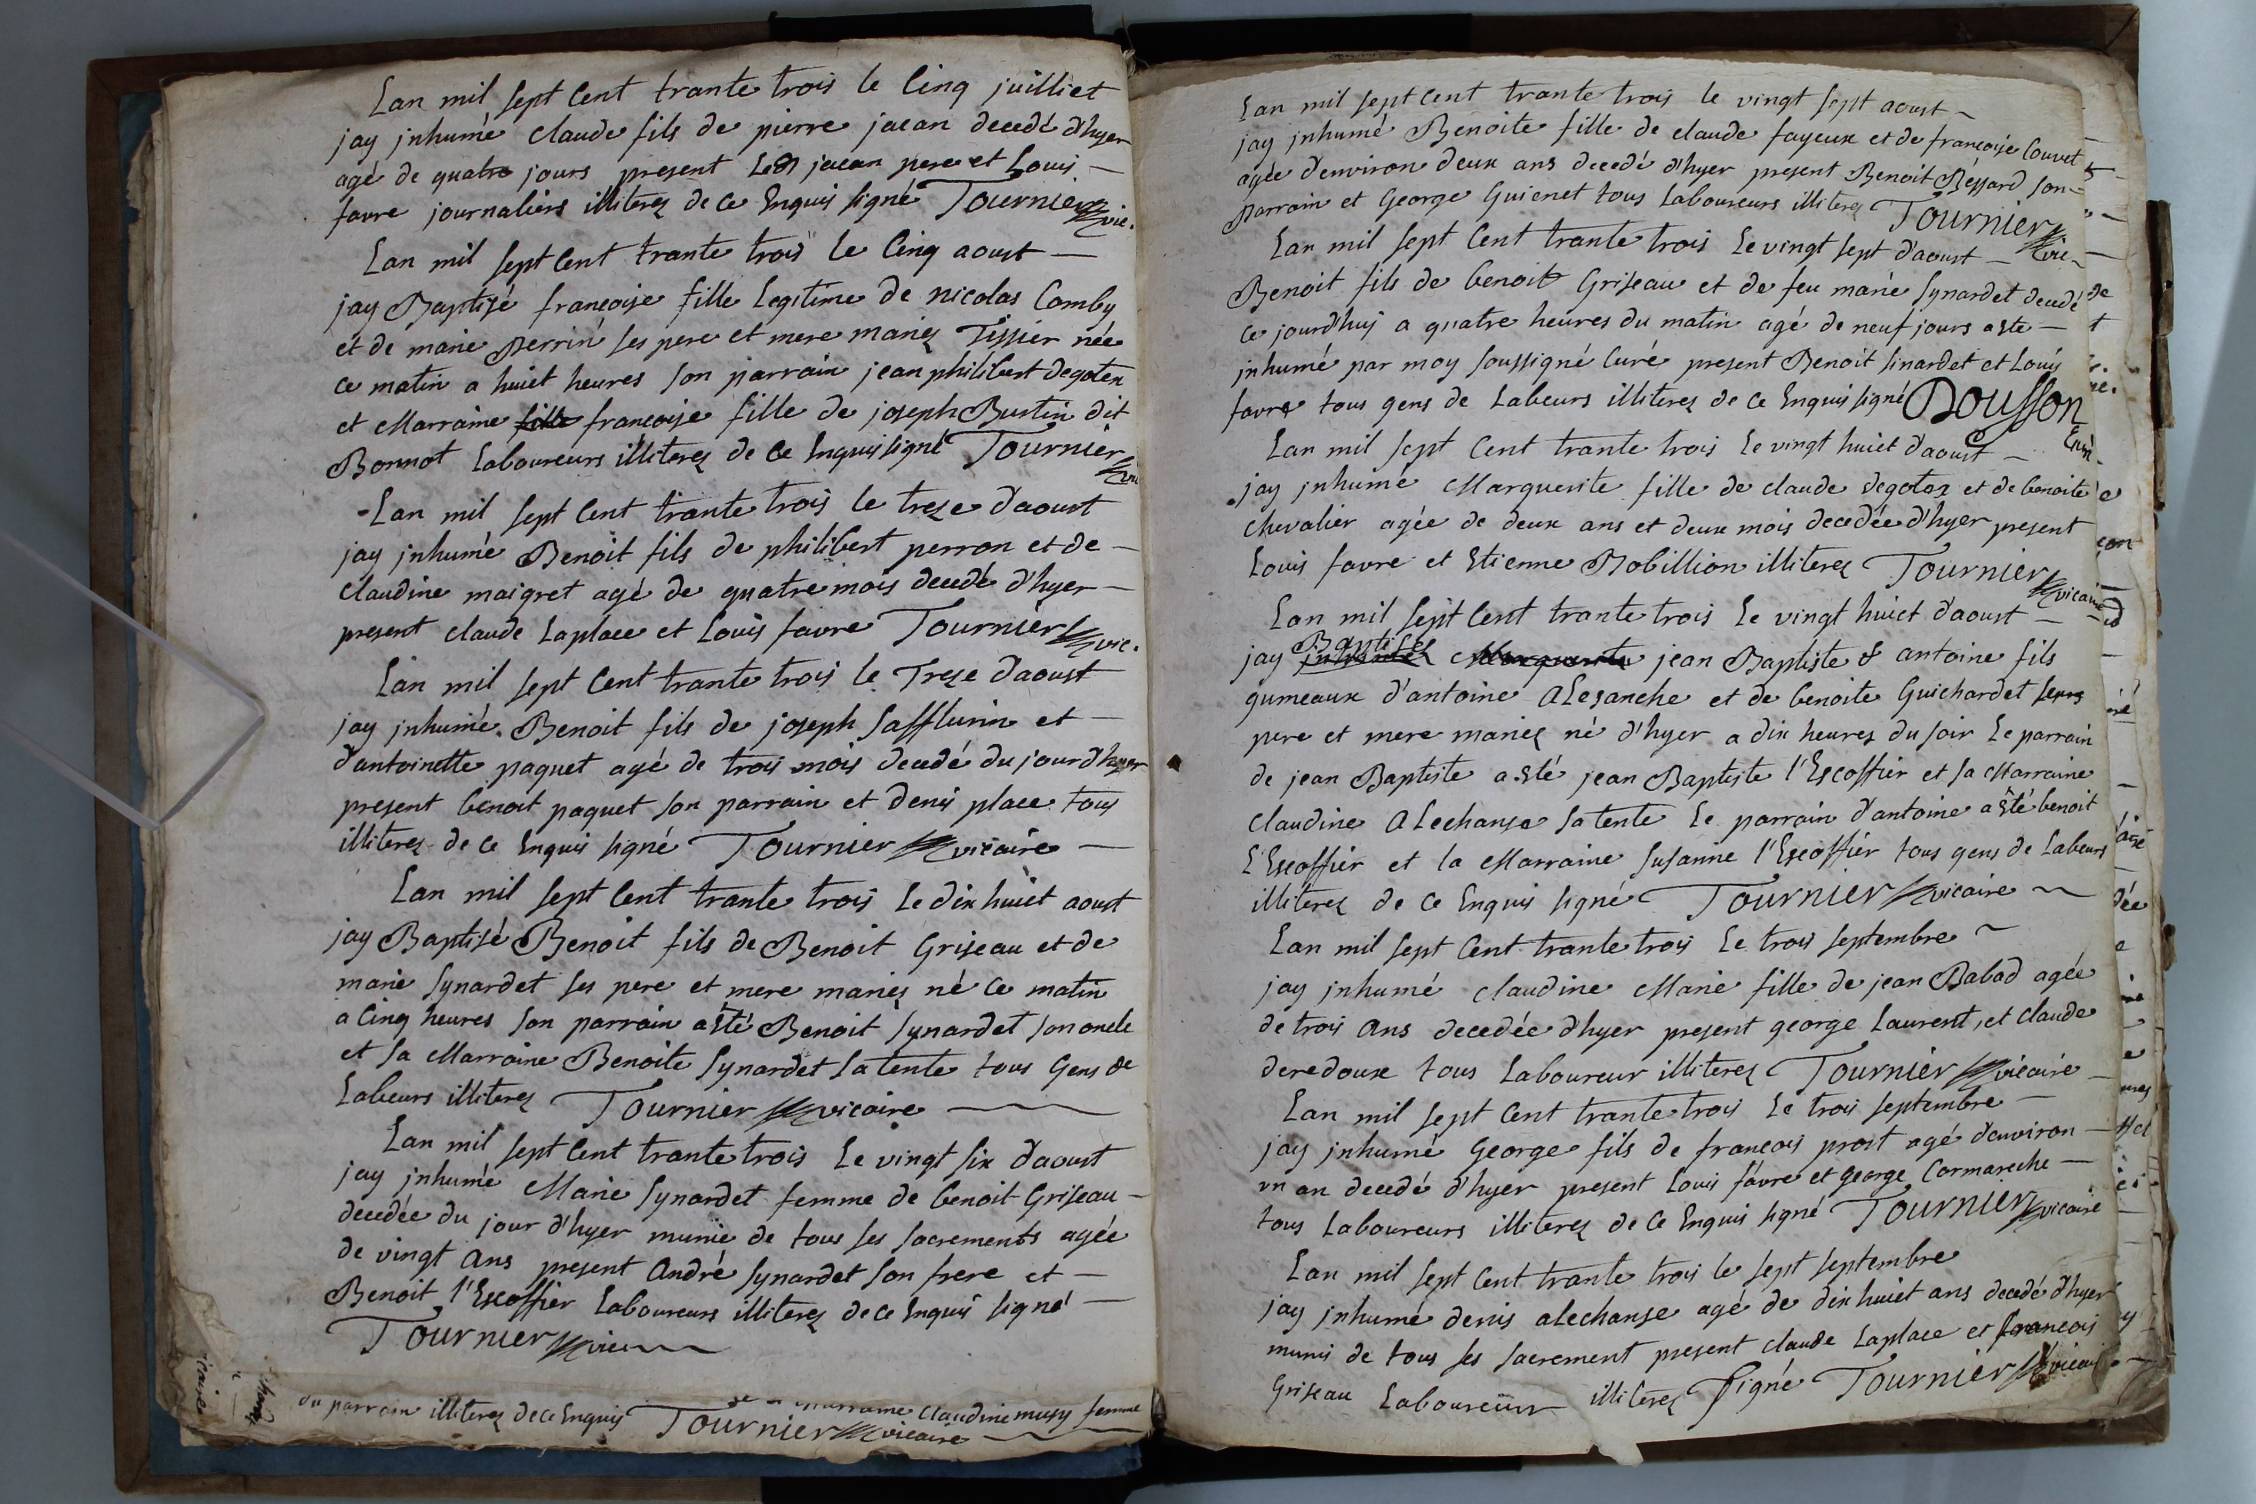 Lan mil sept Cent trante trois le Cinq juilliet
jay jnhumé claude fils de pierre jacan decedé d'hyer
agé de quatre jours present Led jacan pere et Louis
favre journaliers illiterez de ce Enquis signé Tournier vic.
Lan mil sept Cent trante trois le Cinq aoust
jay Baptisé françoise fille Legitime de nicolas Comby
et de marie Perrin ses pere et mere mariez Tissier née
ce matin a huict heures son parrain jean philibert degoten
et Marraine fille françoise fille de joseph Burtin dit
Bonnot Laboureurs illiterez de ce Enquis signé Tournier vic
Lan mil sept Cent trante trois le treze d'aoust
jay jnhumé Benoit fils de philibert perron et de
claudine maigret agé de quatre mois decedé d'hyer
present claude Laplace et Louis favre Tournier vic.
Lan mil sept Cent trante trois le Treze daoust
jay jnhumé Benoit fils de joseph Safflurin et
d'antoinette paquet agé de trois mois decedé du jourd'hyer
present benoit paquet son parrain et denis place tous
illiterez de ce Enquis signé Tournier vicaire
Lan mil sept Cent trante trois Le dix huict aoust
jay Baptisé Benoit fils de Benoit Griseau et de
marie Synardet ses pere et mere mariez né ce matin
a Cinq heures son parrain a Esté Benoit Synardet son oncle
et sa Marraine Benoite Synardet sa tente tous Gens de
Labeurs illiterez Tournier vicaire
Lan mil sept Cent trante trois Le vingt six d'aoust
jay jnhumé Marie Synardet femme de benoit Griseau
decedée du jour d'hyer munie de tous ses sacrements agée
de vingt ans present André Synardet son frere et
Benoit l'Escoffier Laboureurs illiterez de ce Enquis signé
Tournier vic
marraine Claudine musy femme
du parrain illiterez de ce Enquis Tournier vicaire
Lan mil sept Cent trante trois le vingt sept aoust
jay jnhumé Benoite fille de claude fayeux et de françoise Couvet
agée d'environ deux ans decedé d'hyer present Benoit Béssard son
parrain et George Guienet tous Laboureurs illiterez Tournier vic
Lan mil sept Cent trante trois Le vingt sept d'aoust
Benoit fils de benoit Griseau et de feu marie Synardet decedé
ce jourdhuy a quatre heures du matin agé de neuf jours a Este
jnhumé par moy soussigné Curé present Benoit Sinardet et Louis
favre tous gens de Labeurs illiterez de ce Enquis signé Dousson
Curé
Lan mil sept Cent trante trois Le vingt huict d'aoust
jay jnhumé Marguerite fille de claude degotex et de benoite
chevalier agée de deux ans et deux mois decedée d'hyer present
Louis favre et Etienne Robillion illiterez Tournier vicaire
Lan mil sept Cent trante trois Le vingt huict d'aoust
jay Baptisé jean Baptiste & antoine fils
gumeaux d'antoine Alesanche et de benoite Guichardet leurs
pere et mere mariez né d'hyer a dix heures du soir Le parrain
de jean Baptiste a Esté jean Baptiste l'Escoffier et sa Marraine
Claudine Alechanse sa tente Le parrain d'antoine a Esté benoit
L'Escoffier et la Marraine Susanne l'Escoffier tous gens de Labeurs
illiterez de ce Enquis signé Tournier vicaire
Lan mil sept Cent trante trois Le trois septembre
jay jnhumé claudine Marie fille de jean Babad agée
de trois ans decedée d'hyer present george Laurent, et claude
deredoux tous Laboureur illiterez Tournier vicaire
Lan mil sept Cent trante trois Le trois septembre
jay jnhumé George fils de françois prost agé d'environ
un an decedé d'hyer present Louis favre et george Cormareche
tous Laboureurs illiterez de ce Enquis signé Tournier vicaire
Lan mil sept Cent trante trois le sept septembre
jay jnhumé denis alechanse agé de dix huict ans decedé d'hyer
munis de tous ses sacrement present claude Laplace et françois
Griseau Laboureurs illiterez signé Tournier vicaire